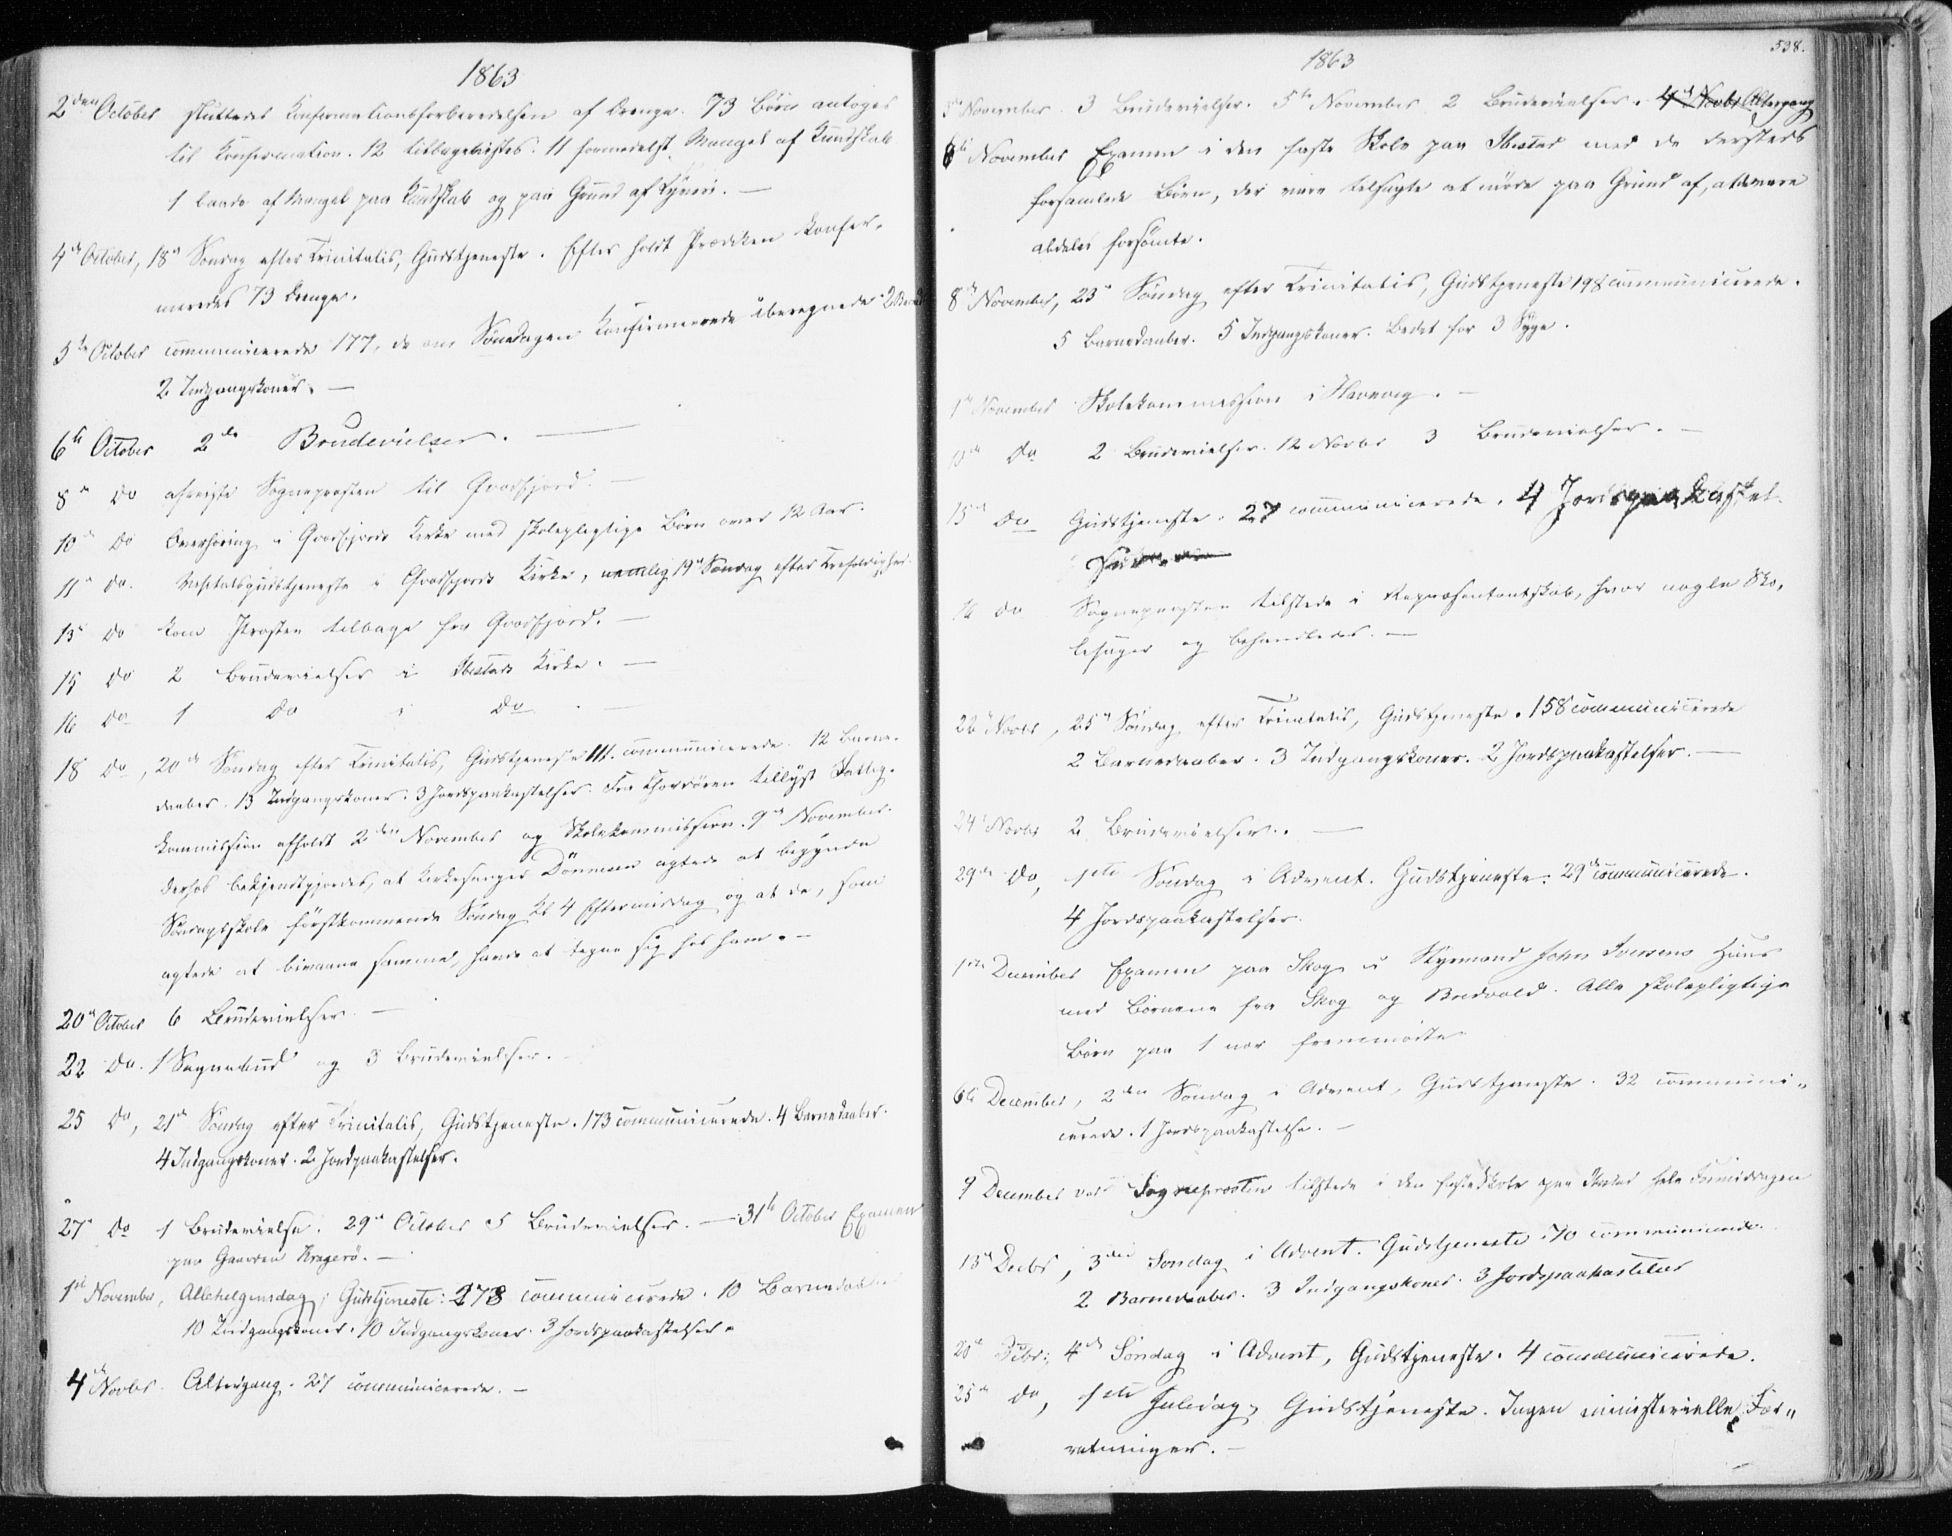 1863
2den October sluttedes Confirmationsforberedelsen af Drenge. 73 Børn antoges
til Confirmation. 12 tilbageviistes. 11 formedelst Mangel af Kundskab
1 baade af Mangel paa Kundskab og paa Grund af Tyveri. —
4de October, 18de Søndag efter Trinitatis, Gudstjeneste. Efter holdt Prædiken Confir-
meredes 73 Drenge.
5te October communicerede 177, de om Søndagen Konfirmerede iberegnede. 2
2 Indgangskoner. —
6te October 2de Brudevielser. —
8de do afreiste Sogneprosten til Gravfjord. —
10de do Overhøring i Gravfjords Kirke med skolepligtige Børn over 12 Aar.
11te do. Gudstjeneste i Gravfjords Kirke, nemlig 19de Søndag efter
13de do kom Provsten tilbage fra Gravfjord. —
15 do 2 Brudevielser i Ibestads Kirke. —
16 do 1 do i do. —
18 do, 20de Søndag efter Trinitatis, Gudstjeneste 111 communicerede. 12 Barne-
daaber. 13 Indgangskoner. 3 Jordspaakastelser. Fra Chordøren tillyst Fattig-
kommission afholdt 2den November og Skolekommission 9de November.
derhos bekjendtgjordes, at Kirkesanger Dønnem agtede at begynde
Søndagsskole førstkommende Søndag Kl 4 Eftermiddag og at de, som
agtede at bivaane samme, havde at tegne sig hos ham. —
20de October 6 Brudevielser. —
22 do. 1 Sognebud og 3 Brudevielser. —
25 do, 21de Søndag efter Trinitatis, Gudstjeneste. 173 communicerede. 4 Barnedaaber.
4 Indgangskoner. 2 Jordpaakastelser.
27de do 1 Brudevielse. 29de October 5 Brudevielser. — 31te October Examen
paa Gaarden Kragerø. —
1ste November, Allehelgensdag, Gudstjeneste: 273 communicerede. 10 Barnedaaber
10 Indgangskoner. 10 Indgangskoner. 3 Jordspaakastelser.
4de Novbr. Altergang. 27 communicerede. —
538.
1863
November 3 Brudevielser. 5te November 2 Brudevielser. 4de Novbr Altergang
6te November Examen i den faste Skole paa Ibestad med de dersteds
forsamlede Børn, der vare tilsagte at møde paa Grund af, at de vare
aldeles forsømte.
8de November, 23de Søndag efter Trinitatis, Gudstjeneste 198 communicerede.
5 Barnedaaber. 5 Indgangskoner. Bedet for 3 Syge.
November Skolekommission i Havnvig. —
do 2 Brudevielser. 12 Novbr 3 Brudevielser. —
15de do Gudstjeneste. 27 communicerede. 4 Jordspaakastel-
16 do Sogneprosten tilstede i Repræsentantskab, hvor nogle Sko-
lesager og behandledes. —
22de Novbr, 25de Søndag efter Trinitatis, Gudstjeneste. 158 communicerede
2 Barnedaaber. 3 Indgangskoner. 2 Jordspaakastelser. —
24de Novbr 2 Brudevielser. —
29de do, 1ste Søndag i Advent. Gudstjeneste. 29 communicerede.
4 Jordspaakastelser.
1ste December Examen paa Skog i Styrmand John Iversens Huus
med Børnene fra Skog og Bredvold. Alle skolepligtige
Børn paa 1 nær fremmødte
6te December, 2den Søndag i Advent, Gudstjeneste. 32 communi-
cerede. 1 Jordspaakastelse. —
9 December var Sogneprosten tilstede i den faste Skole paa Ibestad hele Formiddagen
13de Decbr, 3die Søndag i Advent. Gudstjeneste 70 communicerede.
2 Barnedaaber. 3 Indgangskoner. 3 Jordspaakastelser
20de Decbr, 4de Søndag i Advent, Gudstjeneste. 4 communicerede.
25de do, 1ste Juledag, Gudstjeneste. Ingen ministerielle For-
retninger. —